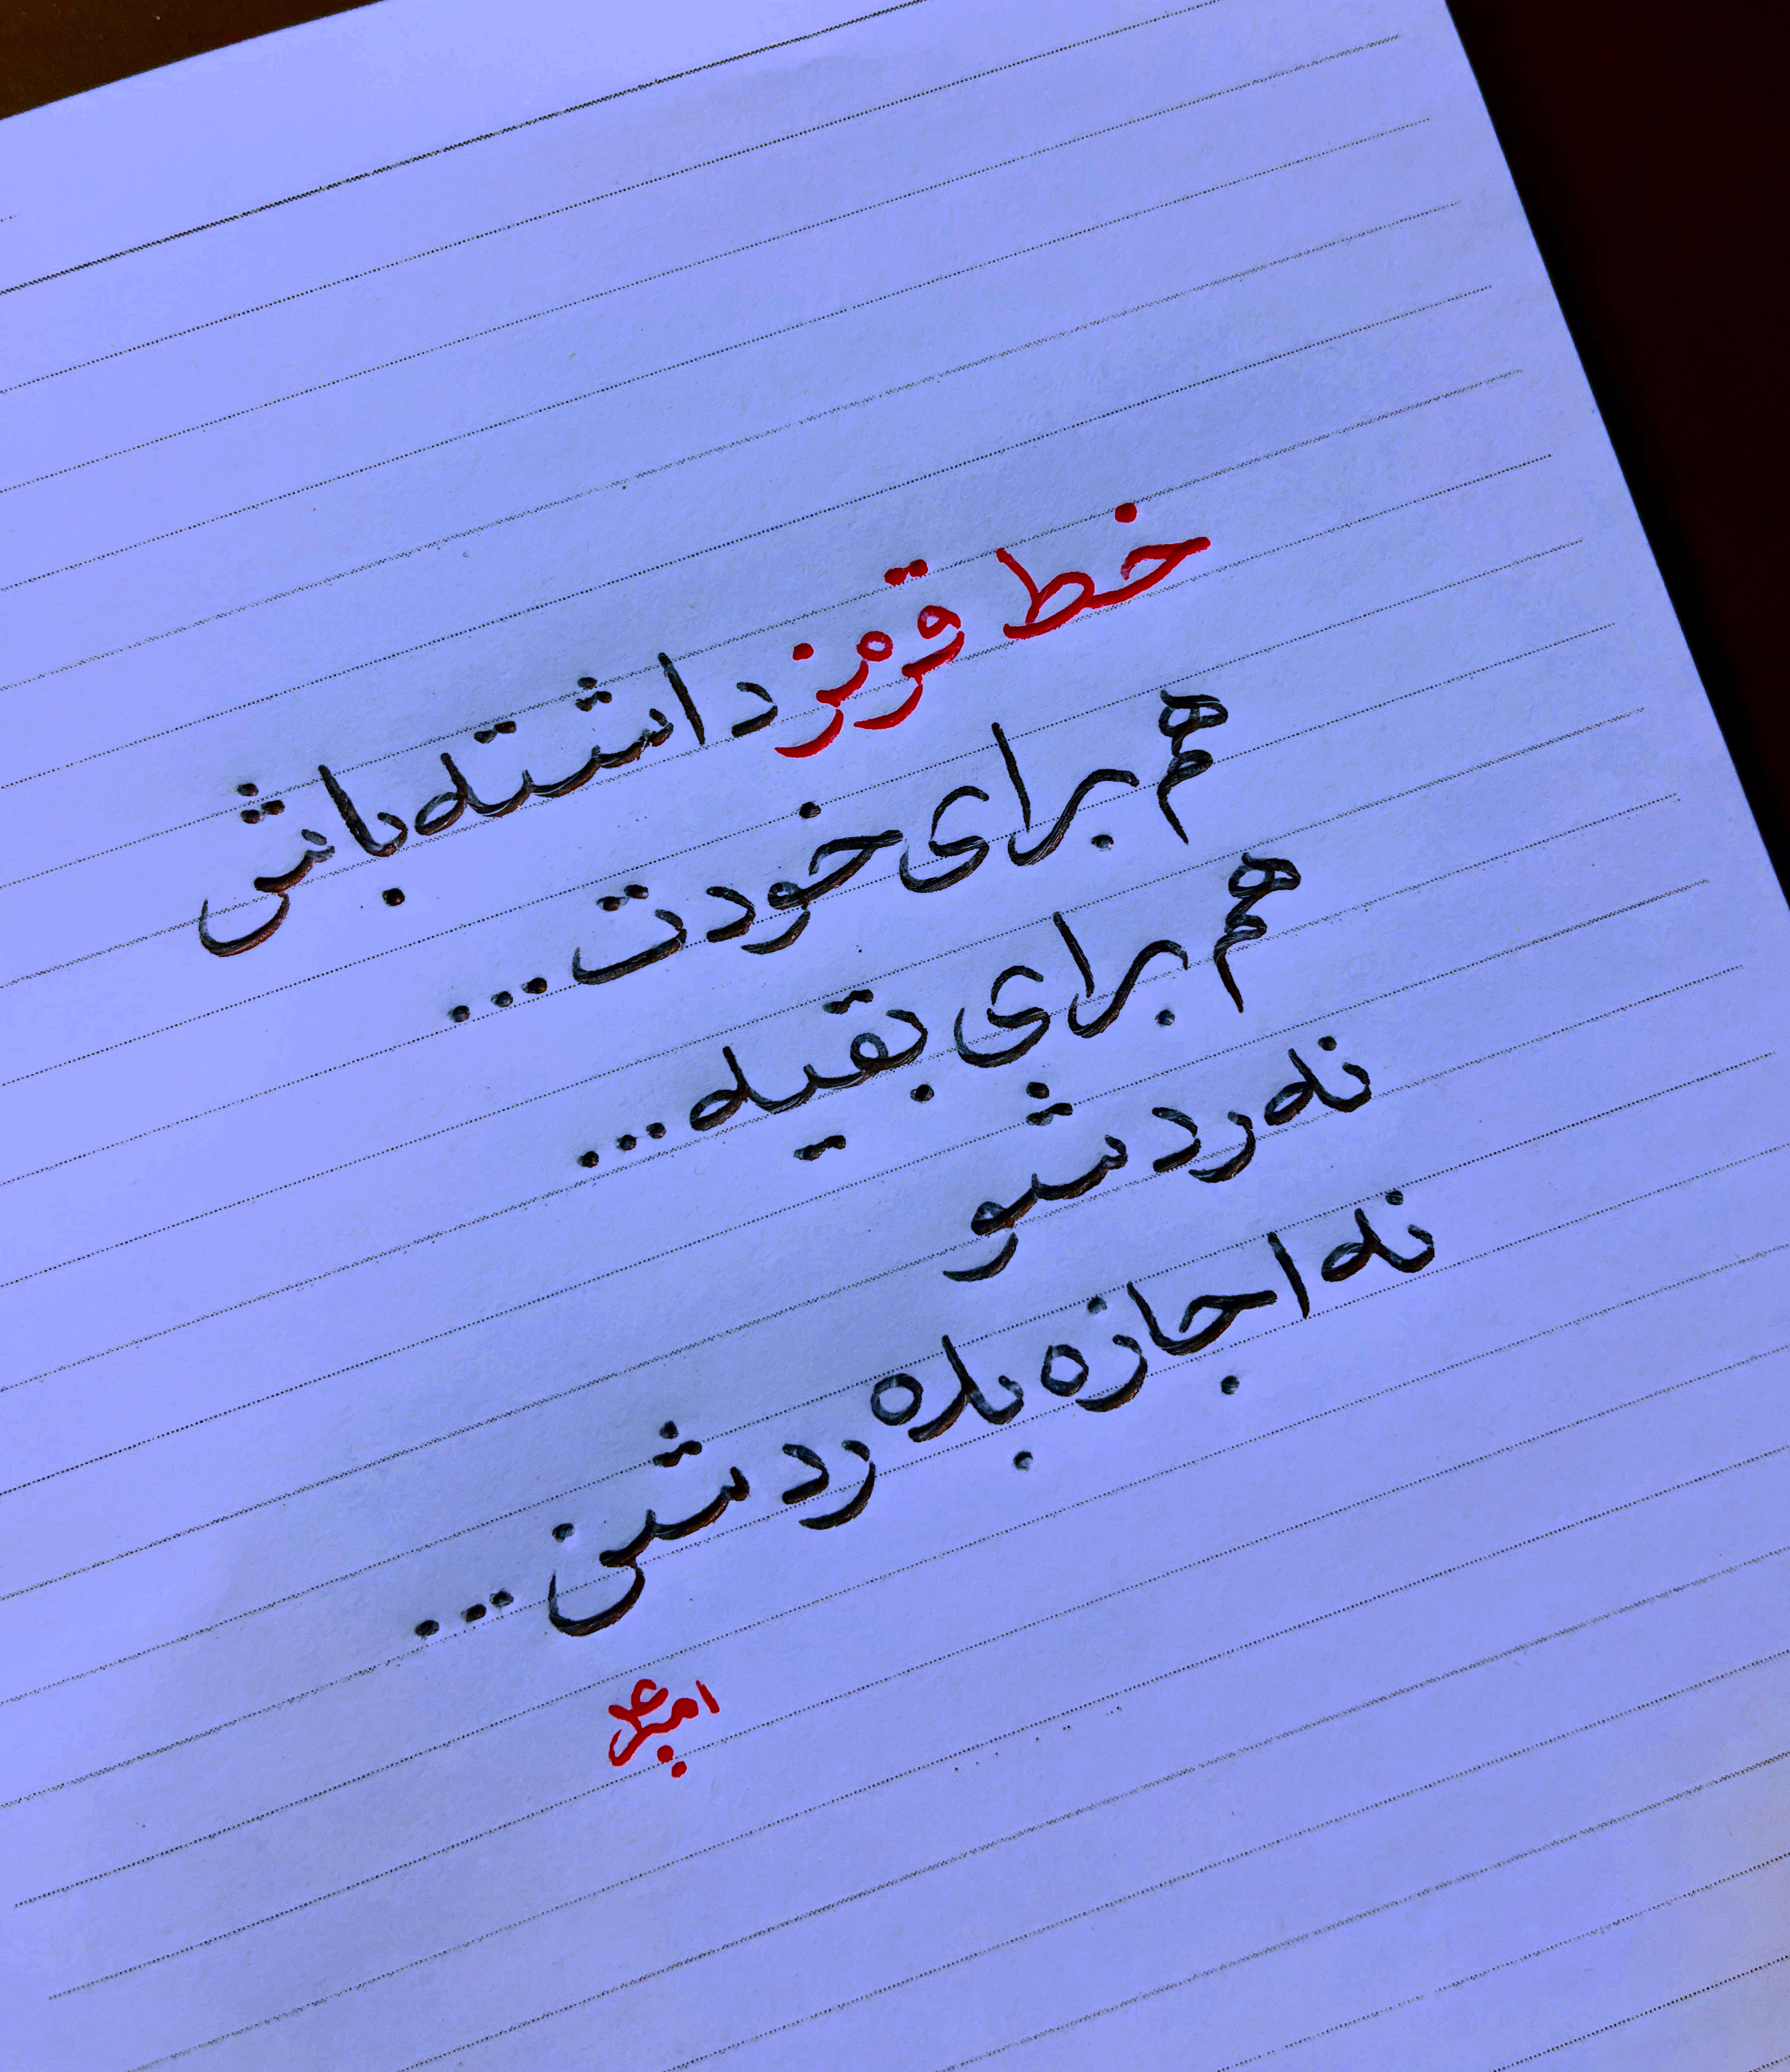 خط قرمز داشته باش
هم برای خودت...
هم برای بقیه...
نه رد شو
نه اجازه بده رد شن...